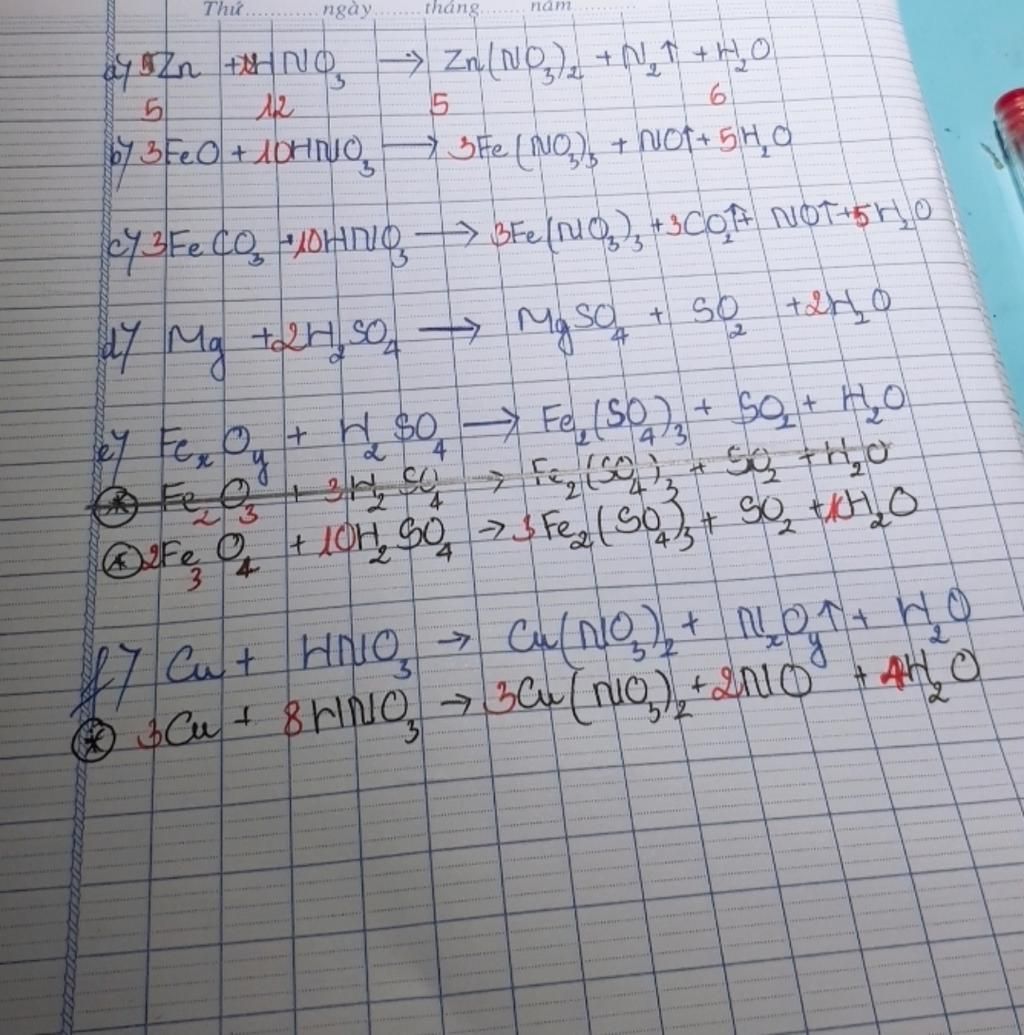 Thứ ngày tháng năm
a) 5Zn + HNO3 → Zn(NO3)2 + N2↑ + H2O
5 12 5 6
b) 3FeO + 10HNO3 → 3Fe(NO3)3 + NO↑ + 5H2O
c) 3FeCO3 + 10HNO3 → 3Fe(NO3)3 + 3CO2↑ + NO↑ + 5H2O
d) Mg + 2H2SO4 → MgSO4 + SO2 + 2H2O
e) FexOy + H2SO4 → Fe2(SO4)3 + SO2 + H2O
* Fe2O3 + 3H2SO4 → Fe2(SO4)3 + SO2 + H2O
* 2Fe3O4 + 10H2SO4 → 3Fe2(SO4)3 + SO2 + 10H2O
f) Cu + HNO3 → Cu(NO3)2 + NxOy↑ + H2O
* 3Cu + 8HNO3 → 3Cu(NO3)2 + 2NO + 4H2O